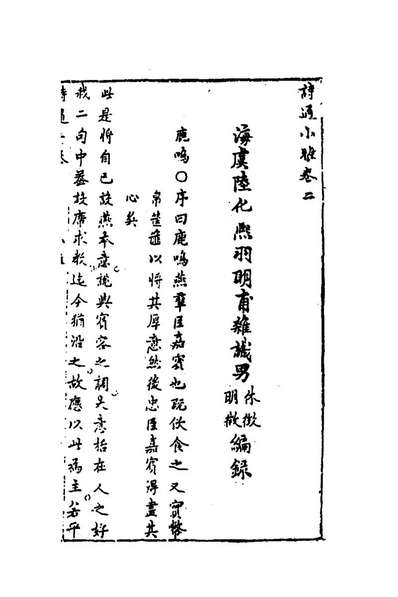 詩通小雅卷二
海虞陸化熙羽明甫雜識男
休徵
明徵
編錄
鹿鳴○序曰鹿鳴燕羣臣嘉賓也既飲食之又實幣
帛筐篚以將其厚意然後忠臣嘉賓得盡其
心矣
此是將自己設燕本意說與賓客之詞大意括在人之好
我二句中蓋投席求教迄今猶沿之故應以此為主若平